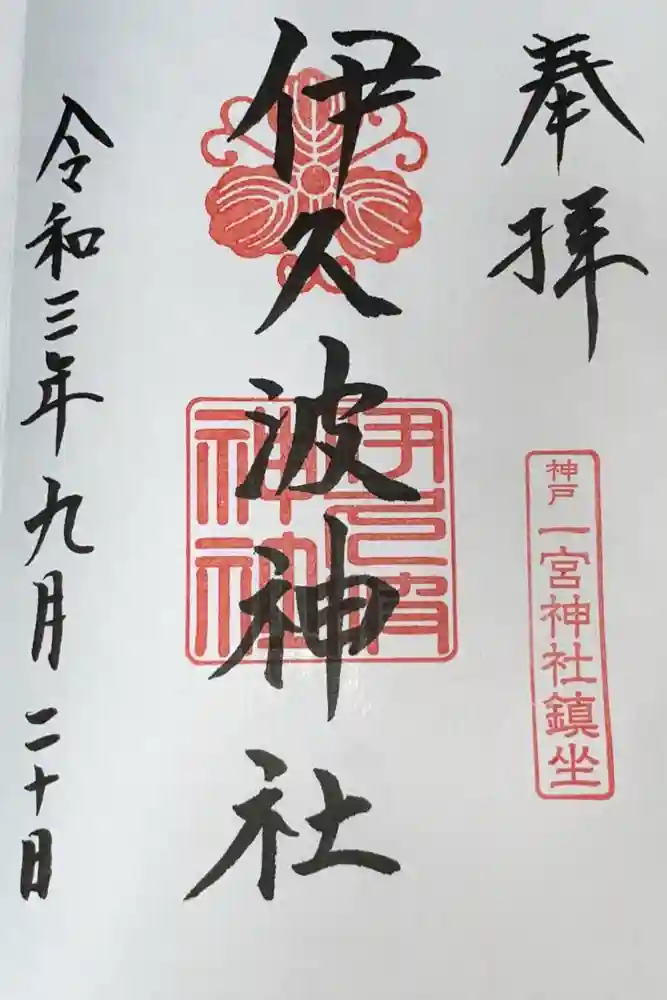 奉拝
神戸一宮神社鎮坐
伊久波神社
伊久波神社
令和三年九月二十日